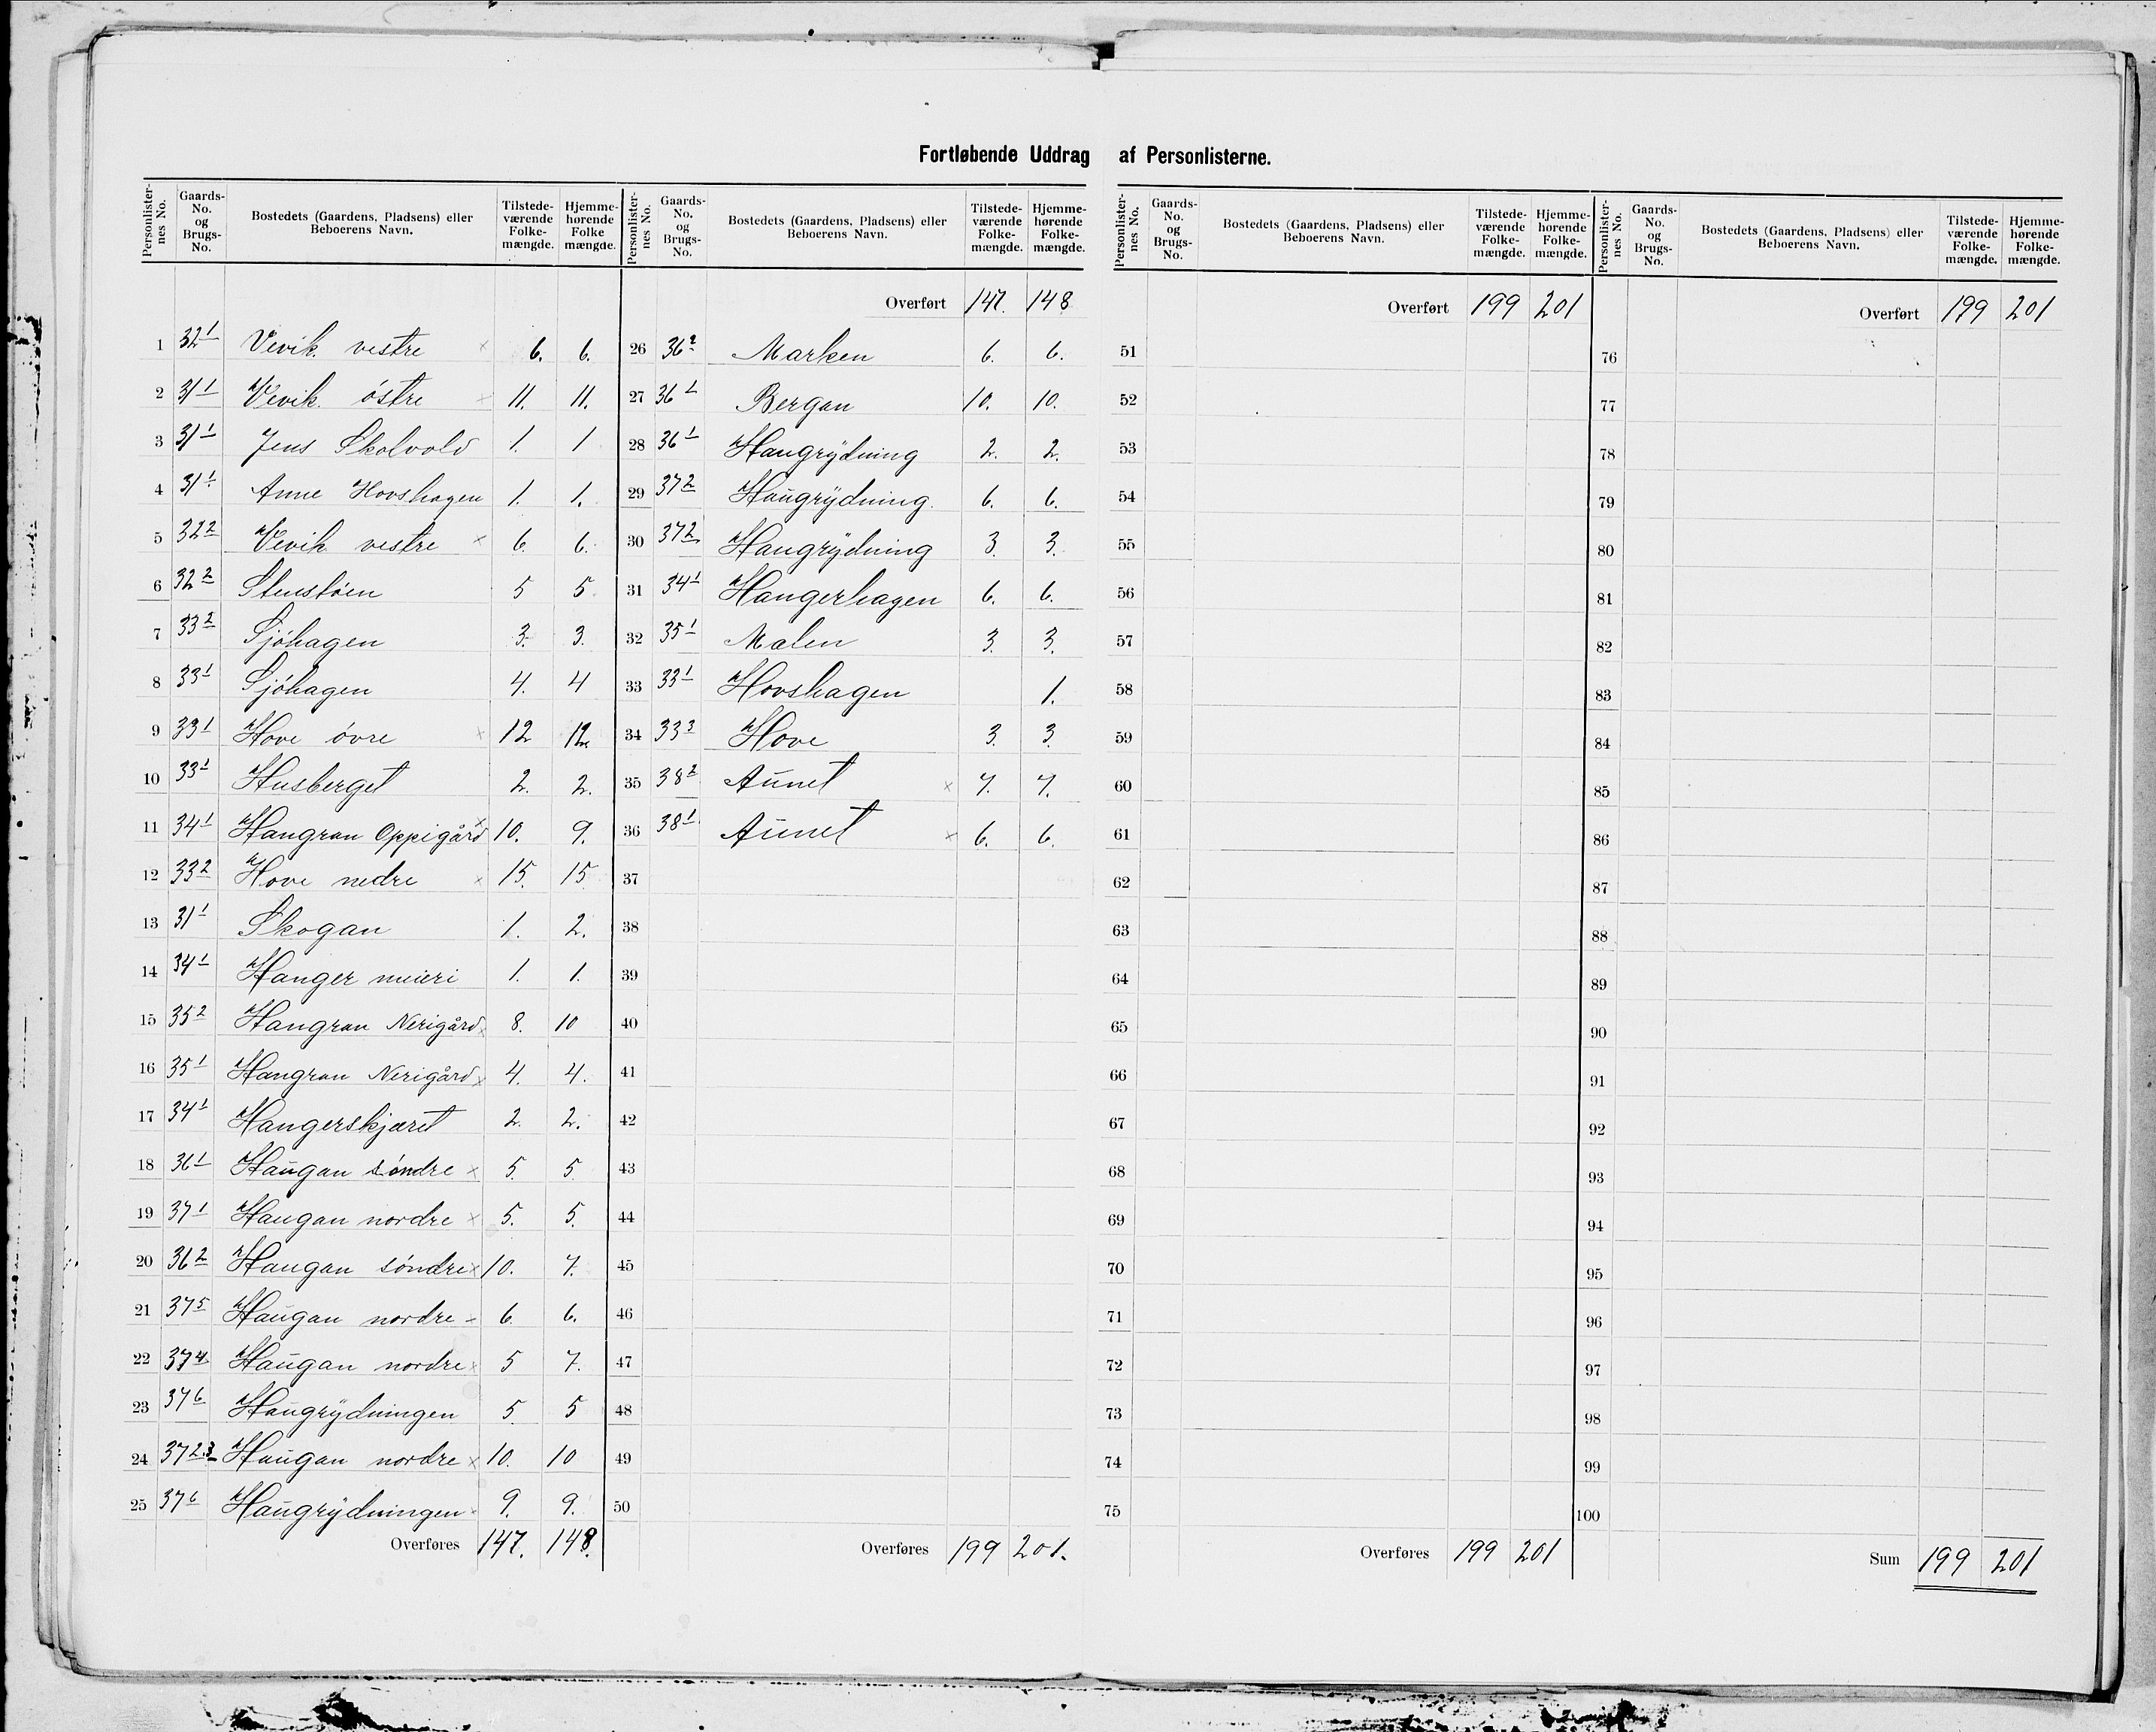 Fortløbende Uddrag af Personlisterne.
Personlisternes No. Gaards-No. og Brugs-No. Bostedets (Gaardens, Pladsens) eller Beboerens Navn. Tilstedeværende Folkemængde. Hjemmehørende Folkemængde.
1 32 1 Vevik vestre × 6. 6.
2 31 1 Vevik østre × 11. 11.
3 31 1 Jens Skolvold 1. 1
4 31 1 Anne Hovshagen 1. 1.
5 32 2 Vevik vestre × 6. 6.
6 32 2 Stenstøen 5 5.
7 33 2 Sjøhagen 3. 3.
8 33 1 Sjøhagen 4. 4
9 33 1 Hove øvre × 12 12.
10 33 1 Husberget 2. 2.
11 34 1 Hangran Oppigård × 10. 9.
12 33 2 Hove nedre × 15. 15
13 31 1 Skogan 1. 2.
14 34 1 Hanger meieri 1. 1.
15 35 2 Hangran Nerigård × 8. 10
16 35 1 Hangran Nerigård × 4. 4.
17 34 1 Hangerskjæret 2. 2.
18 36 1 Haugan søndre × 5. 5
19 37 1 Haugan nordre × 5. 5.
20 36 2 Haugan søndre × 10. 7.
21 37 5 Haugan nordre × 6 6.
22 37 4 Haugan nordre × 5 7.
23 37 6 Haugrydningen 5. 5
24 37 2.3 Haugan nordre × 10. 10
25 37 6 Haugrydningen 9. 9.
Overføres 147. 148.
Personlisternes No. Gaards-No. og Brugs-No. Bostedets (Gaardens, Pladsens) eller Beboerens Navn. Tilstedeværende Folkemængde. Hjemmehørende Folkemængde.
Overført 147. 148
26 36 2 Marken 6. 6.
27 36 1 Bergan 10. 10.
28 36 1 Haugrydning 2. 2.
29 37 2 Haugrydning. 6. 6.
30 37 2 Haugrydning 3. 3.
31 34 1 Hangerhagen 6. 6.
32 35 1 Malen 3. 3.
33 33 1 Hovshagen 1.
34 33 3 Hove 3. 3.
35 38 2 Aunet × 7. 7.
36 38 1 Aunet × 6. 6.
37
38
39
40
41
42
43
44
45
46
47
48
49
50
Overføres 199 201.
Personlisternes No. Gaards-No. og Brugs-No. Bostedets (Gaardens, Pladsens) eller Beboerens Navn. Tilstedeværende Folkemængde. Hjemmehørende Folkemængde.
Overført 199 201
51
52
53
54
55
56
57
58
59
60
61
62
63
64
65
66
67
68
69
70
71
72
73
74
75
Overføres 199 201
Personlisternes No. Gaards-No. og Brugs-No. Bostedets (Gaardens, Pladsens) eller Beboerens Navn. Tilstedeværende Folkemængde. Hjemmehørende Folkemængde.
Overført 199 201
76
77
78
79
80
81
82
83
84
85
86
87
88
89
90
91
92
93
94
95
96
97
98
99
100
Sum 199 201